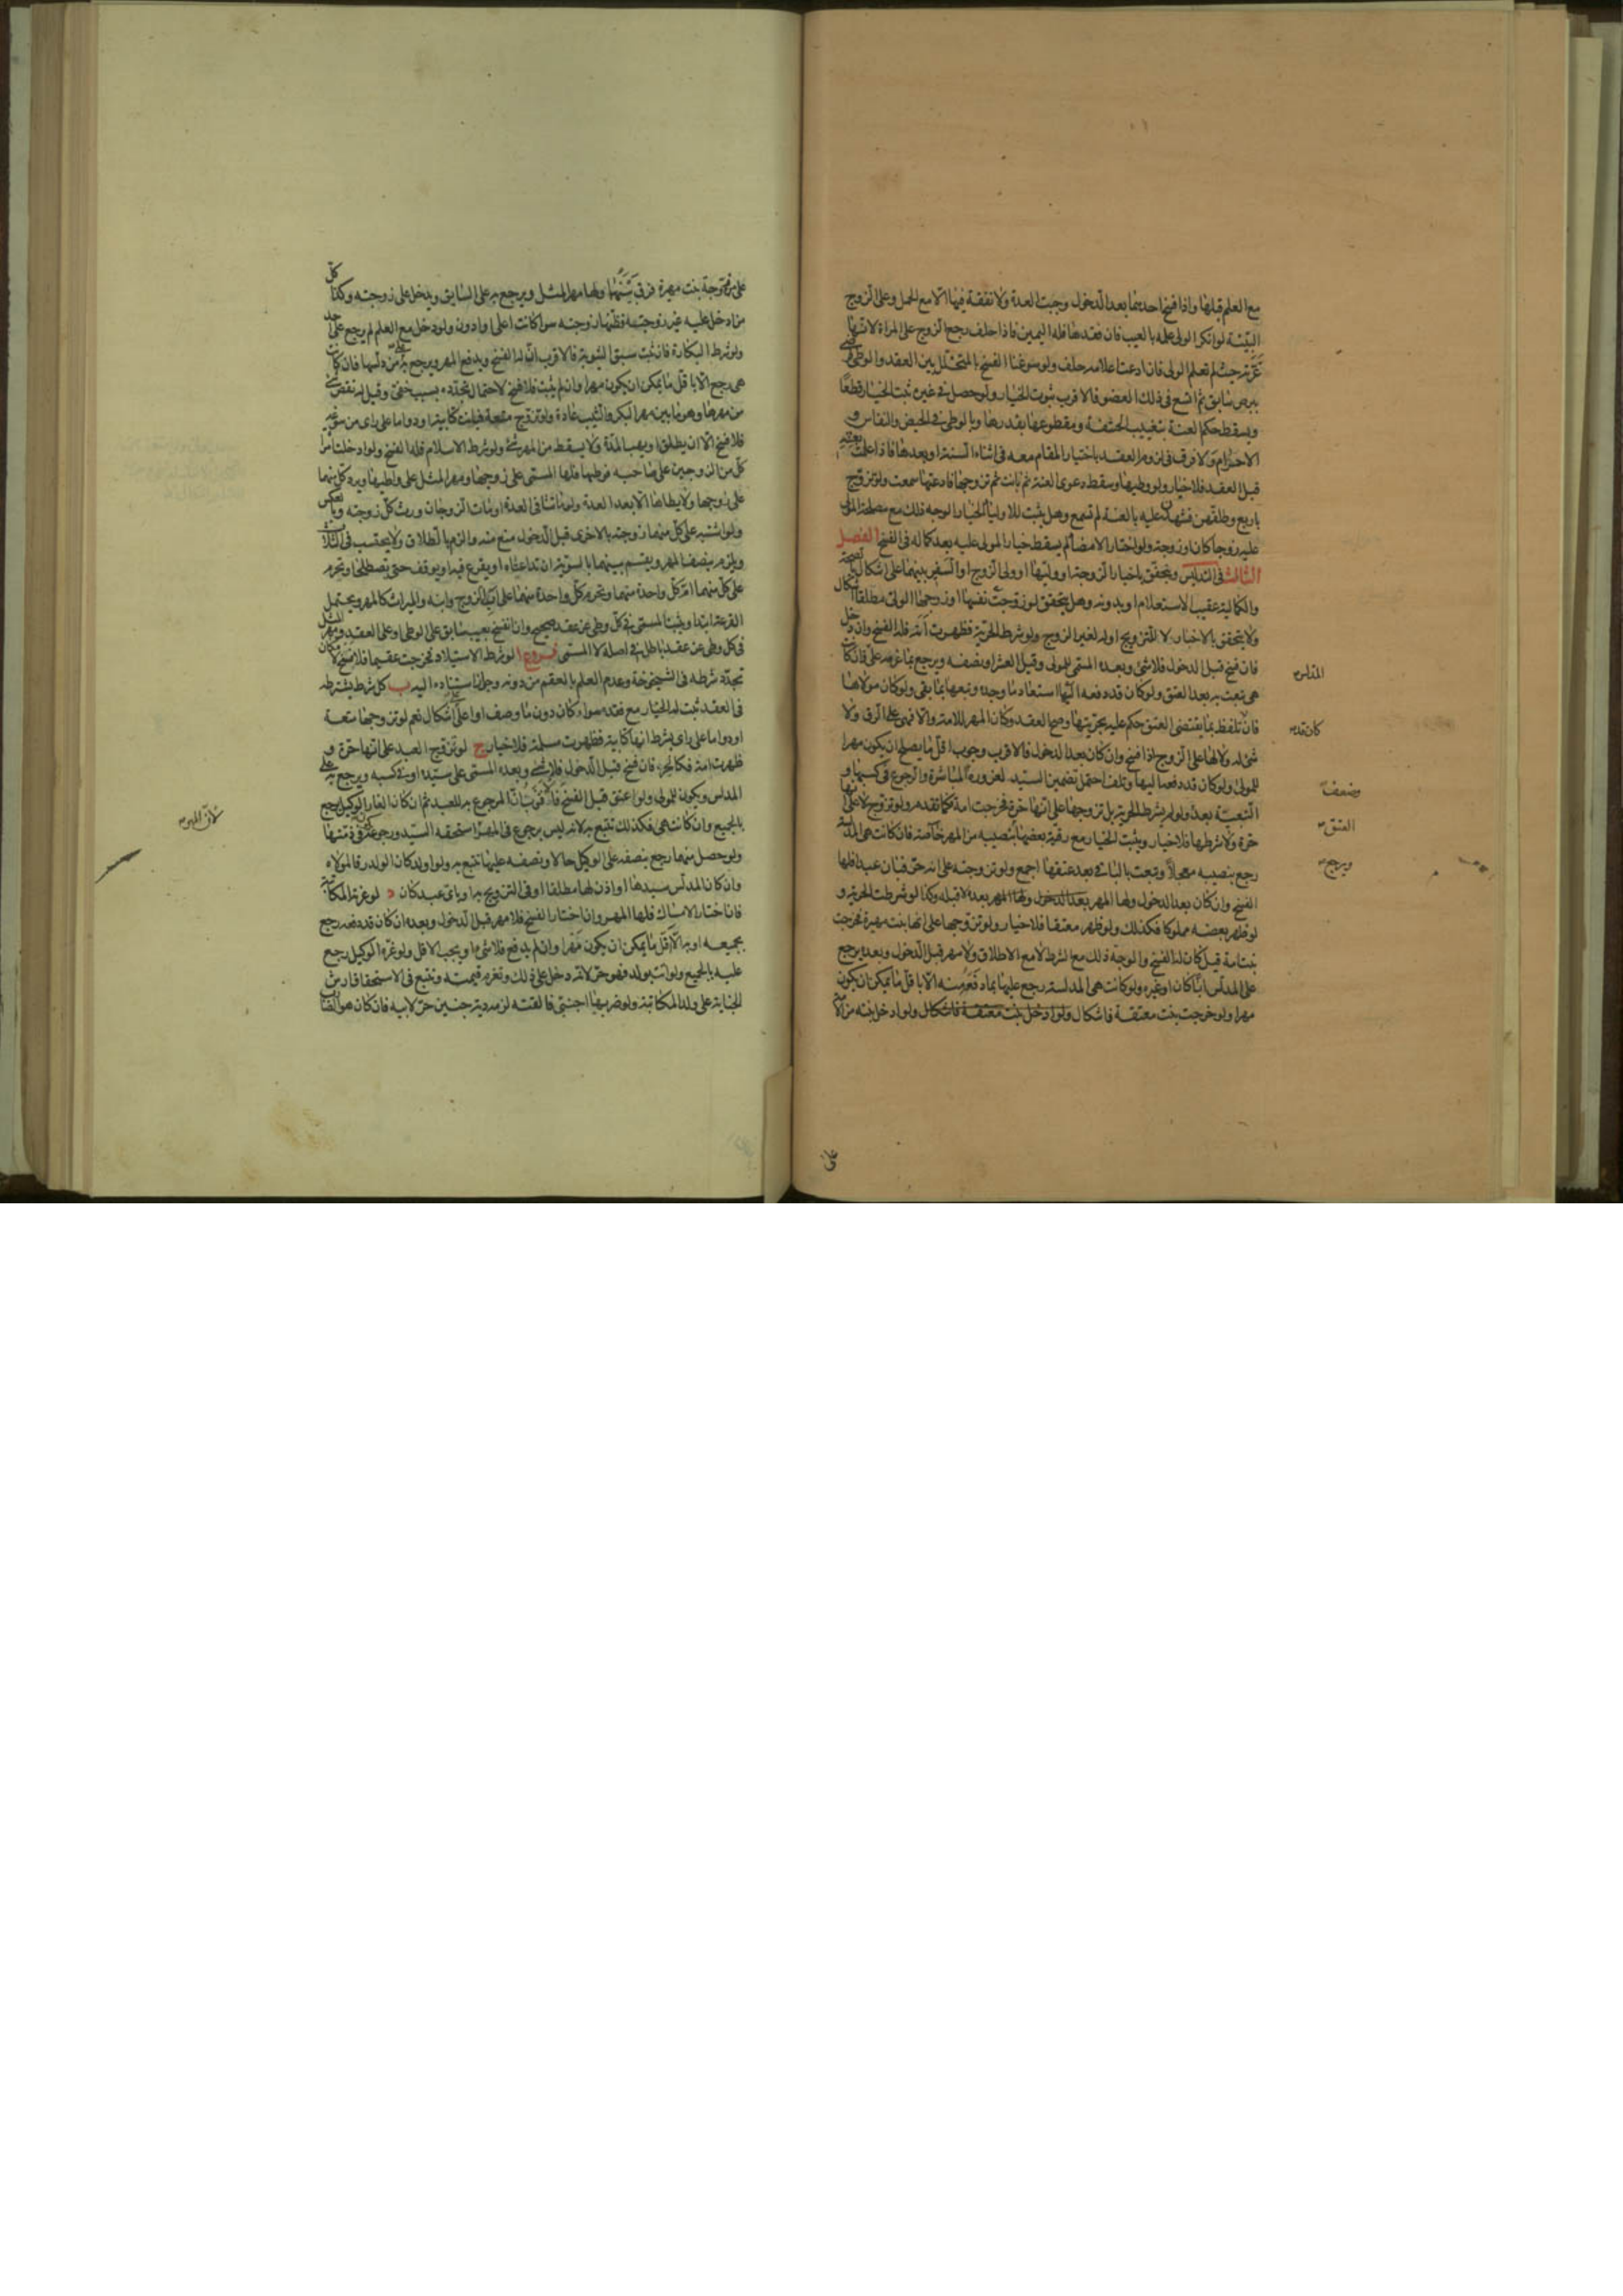 مع العلم قبلها واذا فسخ احدهما بعد الدخول وجبت العدة ولا نفقة فيها الا مع الحمل وعلى الزوج
البينة لو انكر الولى علمه بالعيب فان فقدها فله اليمين فاذا حلف رجع الزوج على المراة لانها
غرته حيث لم تعلم الولى فان ادعت اعلامه حلف ولو سوغنا الفسخ بالمتخلل بين العقد والوطى فرضى
ببرص سابق ثم اتسع فى ذلك العضو فالاقرب ثبوت الخيار ولو حصل فى غيره ثبت الخيار قطعا
ويسقط حكم العنة بتغييب الحشفة ومقطوعها بقدرها وبالوطى فى الحيض والنفاس و
الاحرام ولا فرق فى لزوم العقد باختيار المقام معه فى اثناء السنة او بعدها فاذا علمت بعنته
قبل العقد فلا خيار ولو وطيها وسقط دعوى العنة ثم بانت ثم تزوجها فادعتها سمعت ولو تزوج
باربع وطلقهن فشهدن عليه بالعنة لم تسمع وهل يثبت للاولياء الخيار الوجه ذلك مع مصلحة المولى
عليه زوجا كان او زوجة ولو اختار الامضاء لم يسقط خيار المولى عليه بعد كماله فى الفسخ الفصل
الثالث فى التدليس ويتحقق باخبار الزوجة او وليها او ولى الزوج او السفير بينهما على اشكال بالصحة
والكمالية عقيب الاستعلام او بدونه وهل يتحقق لو زوجت نفسها او زوجها الولى مطلقا اشكال
ولا يتحقق بالاخبار لا للتزويج او له لغير الزوج ولو شرط الحرية فظهرت امة فله الفسخ وان دخل
فان فسخ قبل الدخول فلا شئ وبعده المسمى للمولى وقيل العشر او نصفه ويرجع بما غرمه على فان كانت
المدلس
هى تبعت به بعد العتق ولو كان قد دفعه اليها استعاد ما وجد وتبعها بما بقى ولو كان مولاها
فان تلفظ بما يقتضى العتق حكم عليه بحريتها وصح العقد وكان المهر للامة والا فهى على الرق ولا
كان قد
شئ له ولا لها على الزوج اذا فسخ وان كان بعد الدخول فالاقرب وجوب اقل ما يصلح ان يكون مهرا
للمولى ولو كان قد دفعه اليها وتلف احتمل تضمين السيد لغروره المباشرة والرجوع فى كسبها و
ويضعف
التبعية بعد ولو لم يشترط الحرية بل تزوجها على انها حرة فخرجت امة فكما تقدم ولو تزوج لا على انها
العتق
حرة ولا شرطها فلا خيار ويثبت الخيار مع رقية بعضها بنصيبه من المهر خاصة فان كانت هى المدلسة
ويرجع
رجع بنصيبه معجلا وتبعت بالباقى بعد عتقها اجمع ولو تزوجته على انه حر فبان عبدا فلها
الفسخ وان كان بعد الدخول ولها المهر بعد الدخول لا قبله وكذا لو شرطت الحرية و
لو ظهر بعضه مملوكا فكذلك ولو ظهر معتقا فلا خيار ولو تزوجها على انها بنت مهيرة فخرجت
بنت امة قيل كان له الفسخ والوجه ذلك مع الشرط لا مع الاطلاق ولا مهر قبل الدخول وبعده يرجع
على المدلس ابا كان او غيره ولو كانت هى المدلسة رجع عليها بما دفعه منه الا باقل ما يمكن ان يكون
مهرا ولو خرجت بنت معتقة فاشكال ولو ادخل بنته من الامة
على
على من تزوجه بنت مهيرة فرق بينهما ولها مهر المثل ويرجع به على السابق ويدخل على زوجته وكذا كل
من ادخل عليه غير زوجته فظنها زوجته سواء كانت اعلى او ادون ولو دخل مع العلم لم يرجع على احد
ولو شرط البكارة فان ثبت سبق الثيوبة فالاقرب ان له الفسخ ويدفع المهر ويرجع به على من دلسها فان كانت
هى رجع الا باقل ما يمكن ان يكون مهرا وان لم يثبت فلا فسخ لاحتمال تجدده بسبب خفى وقيل له نقص شئ
من مهرها وهو ما بين مهر البكر والثيب عادة ولو تزوج متعة فبانت كتابية او دواما على راى من سوغه
فلا فسخ الا ان يطلق او يهب المدة ولا يسقط من المهر شئ ولو شرط الاسلام فله الفسخ ولو ادخلت امراة
كل من الزوجين على صاحبه فوطيها فلها المسمى على زوجها ومهر المثل على واطيها ويرد كل منهما
على زوجها ولا يطاها الا بعد العدة ولو ماتتا فى العدة او مات الزوجان ورث كل زوجته وبالعكس
ولو اشتبه على كل منهما زوجته بالاخرى قبل الدخول منع منه والزم بالطلاق ولا يحتسب فى الثلاث
ويلزم بنصف المهر ويقسم بينهما بالسوية ان تداعتاه او يقرع فيه او يوقف حتى تصطلحا وتحرم
على كل منهما ام كل واحدة منهما وتحرم كل واحدة منهما على اب الزوج وابنه والميراث كالمهر ويحتمل
القرعة ابتداء ويثبت المسمى فى كل وطى عن عقد صحيح وان انفسخ بعيب سابق على الوطى او على العقد ومهر المثل
فى كل وطى عن عقد باطل فى اصله لا المسمى فروع ا لو شرط الاستيلاد فخرجت عقيما فلا فسخ لامكان
تجدد شرطه فى الشيخوخة وعدم العلم بالعقم من دونه وجواز استناده اليه ب كل شرط يشترطه
فى العقد ثبت له الخيار مع فقده سواء كان دون ما وصف او اعلى على اشكال نعم لو تزوجها متعة
او دواما على راى بشرط انها كتابية فظهرت مسلمة فلا خيار ج لو تزوج العبد على انها حرة و
ظهرت امة فكالحر فان فسخ قبل الدخول فلا شئ وبعده المسمى على سيده او فى كسبه ويرجع به على
المدلس ويكون للمولى ولو اعتق قبل الفسخ فالاقرب ان المرجوع به للعبد ثم ان كان الغار الوكيل رجع
لان المهر
بالجميع وان كانت هى فكذلك تتبع به لانه ليس برجوع فى المهر استحقه السيد ورجوعه فى ذمتها
ولو حصل منهما رجع بنصفه على الوكيل حالا ونصفه عليها تتبع به ولو اولد كان الولد رقا لمولاه
وان كان المدلس سيدها او اذن لها مطلقا او فى التزويج به او باى عبد كان د لو غرته المكاتبة
فان اختار الامساك فلها المهر وان اختار الفسخ فلا مهر قبل الدخول وبعده ان كان قد دفعه رجع
بجميعه او به الا اقل ما يمكن ان يكون مهرا وان لم يدفع فلا شئ او يجب الاقل ولو غره الوكيل رجع
عليه بالجميع ولو اتت بولد فهو حر لانه دخل على ذلك وتغرم قيمته وتتبع فى الاستحقاق ارش
الجناية على ولد المكاتبة ولو ضربها اجنبى فالقته لزمه دية جنين حر لابيه فان كان هو الضارب